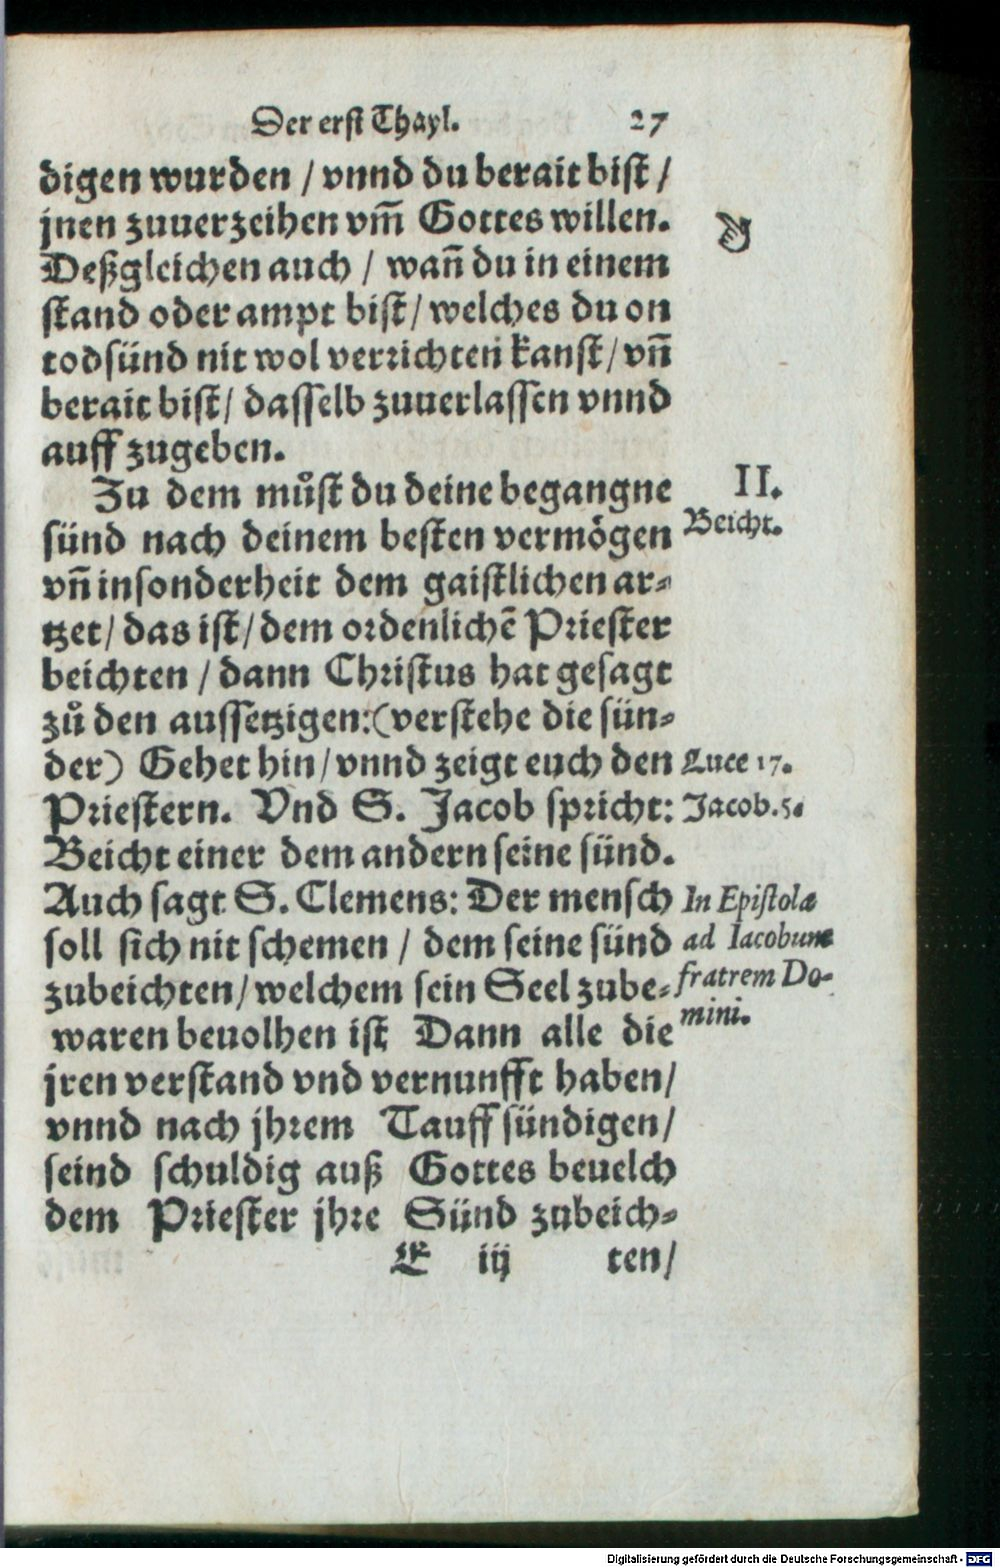 Der erst Thayl. 27
digen wurden / vnnd du berait bist /
jnen zuuerzeihen vm̃ Gottes willen.
Deßgleichen auch / wañ du in einem
stand oder ampt bist / welches du on
todsünd nit wol verrichten kanst / vñ
berait bist / dasselb zuuerlassen vnnd
auff zugeben.
Zu dem můst du deine begangne
sünd nach deinem besten vermögen
vñ insonderheit dem gaistlichen ar-
tzet / das ist / dem ordenlichẽ Priester
beichten / dann Christus hat gesagt
zů den aussetzigen: (verstehe die sün-
der) Gehet hin / vnnd zeigt euch den
Priestern. Vnd S. Jacob spricht:
Beicht einer dem andern seine sünd.
Auch sagt S. Clemens: Der mensch
soll sich nit schemen / dem seine sünd
zubeichten / welchem sein Seel zube-
waren beuolhen ist Dann alle die
jren verstand vnd vernunfft haben /
vnnd nach jhrem Tauff sündigen /
seind schuldig auß Gottes beuelch
dem Priester jhre Sünd zubeich-
E iij ten /
II.
Beicht.
Luce 17.
Jacob. 5.
In Epistola
ad Iacobum
fratrem Do-
mini.
Digitalisierung gefördert durch die Deutsche Forschungsgemeinschaft - DFG